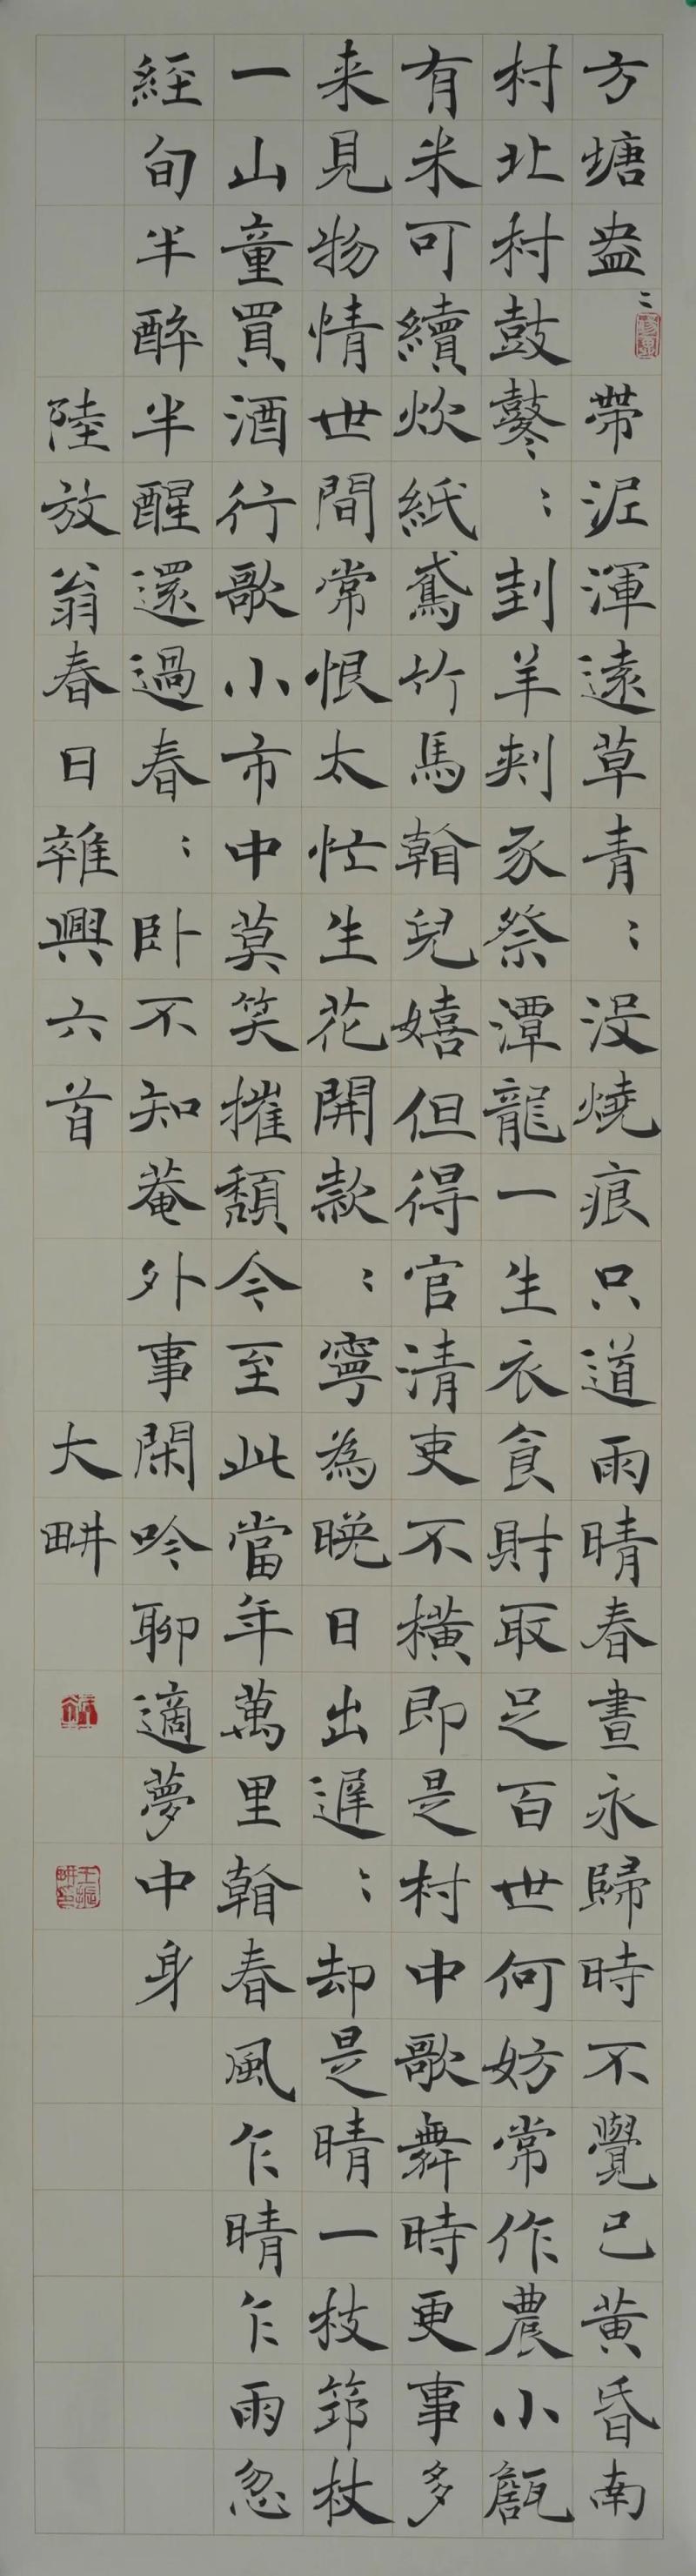 方塘盎〻帶泥渾遠草青〻没燒痕只道雨晴春晝永歸時不覺已黃昏南
村北村鼓鼕〻刲羊刾豕祭潭龍一生衣食財取足百世何妨常作農小甑
有米可續炊紙鳶竹馬看兒嬉但得官清吏不橫即是村中歌舞時更事多
来見物情世間常恨太忙生花開款〻寧為晚日出遲〻却是晴一枝筇杖
一山童買酒行歌小市中莫笑摧頹今至此當年萬里看春風乍晴乍雨忽
經旬半醉半醒還過春〻卧不知菴外事閑吟聊適夢中身
陸放翁春日雜興六首 大畊